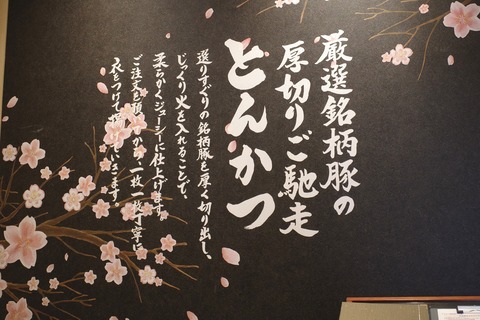 厳選銘柄豚の
厚切りご馳走
とんかつ
選りすぐりの銘柄豚を厚く切り出し、
じっくり火を入れることで、
柔らかくジューシーに仕上げます。
ご注文を頂いてから一枚一枚丁寧に
衣をつけて揚げていきます。